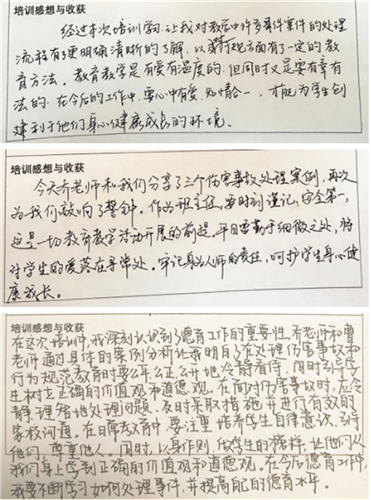 培训感想与收获
经过本次培训学习,让我对教学中许多事件案件的处理
流程有了更明确清晰的了解,以及行规方面有了一定的教
育方法。教育教学是有爱有温度的,但同时又是要有章有
法的。在今后的工作中,要心中有爱,知情合一,才能为学生创
建利于他们身心健康成长的环境。
培训感想与收获
今天乔老师和我们分享了三个伤害事故处理案例,再次
为我们敲响了警钟。作为班主任,要时刻谨记,安全第一,
这是一切教育教学活动开展的前提,平日要勤于细微之处,将
对学生的爱落在寻常处。牢记身为人师的责任,呵护学生身心健
康成长。
培训感想与收获
在这次培训中,我深刻认识到了德育工作的重要性。乔老师和曹
老师通过具体的案例分析让我明白了在处理伤害事故和
行为规范教育时要公平公正并地冷静看待。同时引导学
生树立正确的价值观和道德观。在面对伤害事故时,应冷
静理智地处理问题,及时采取措施并进行有效的
家校沟通。在日常教育中要注重培养学生自律意识,引导
他们,尊重他人。同时,以身作则,做学生的榜样,让他们从
我们身上学到正确的价值观和道德观。在今后德育工作中,
我要不断学习如何处理事件,并提高自己的德育水平。